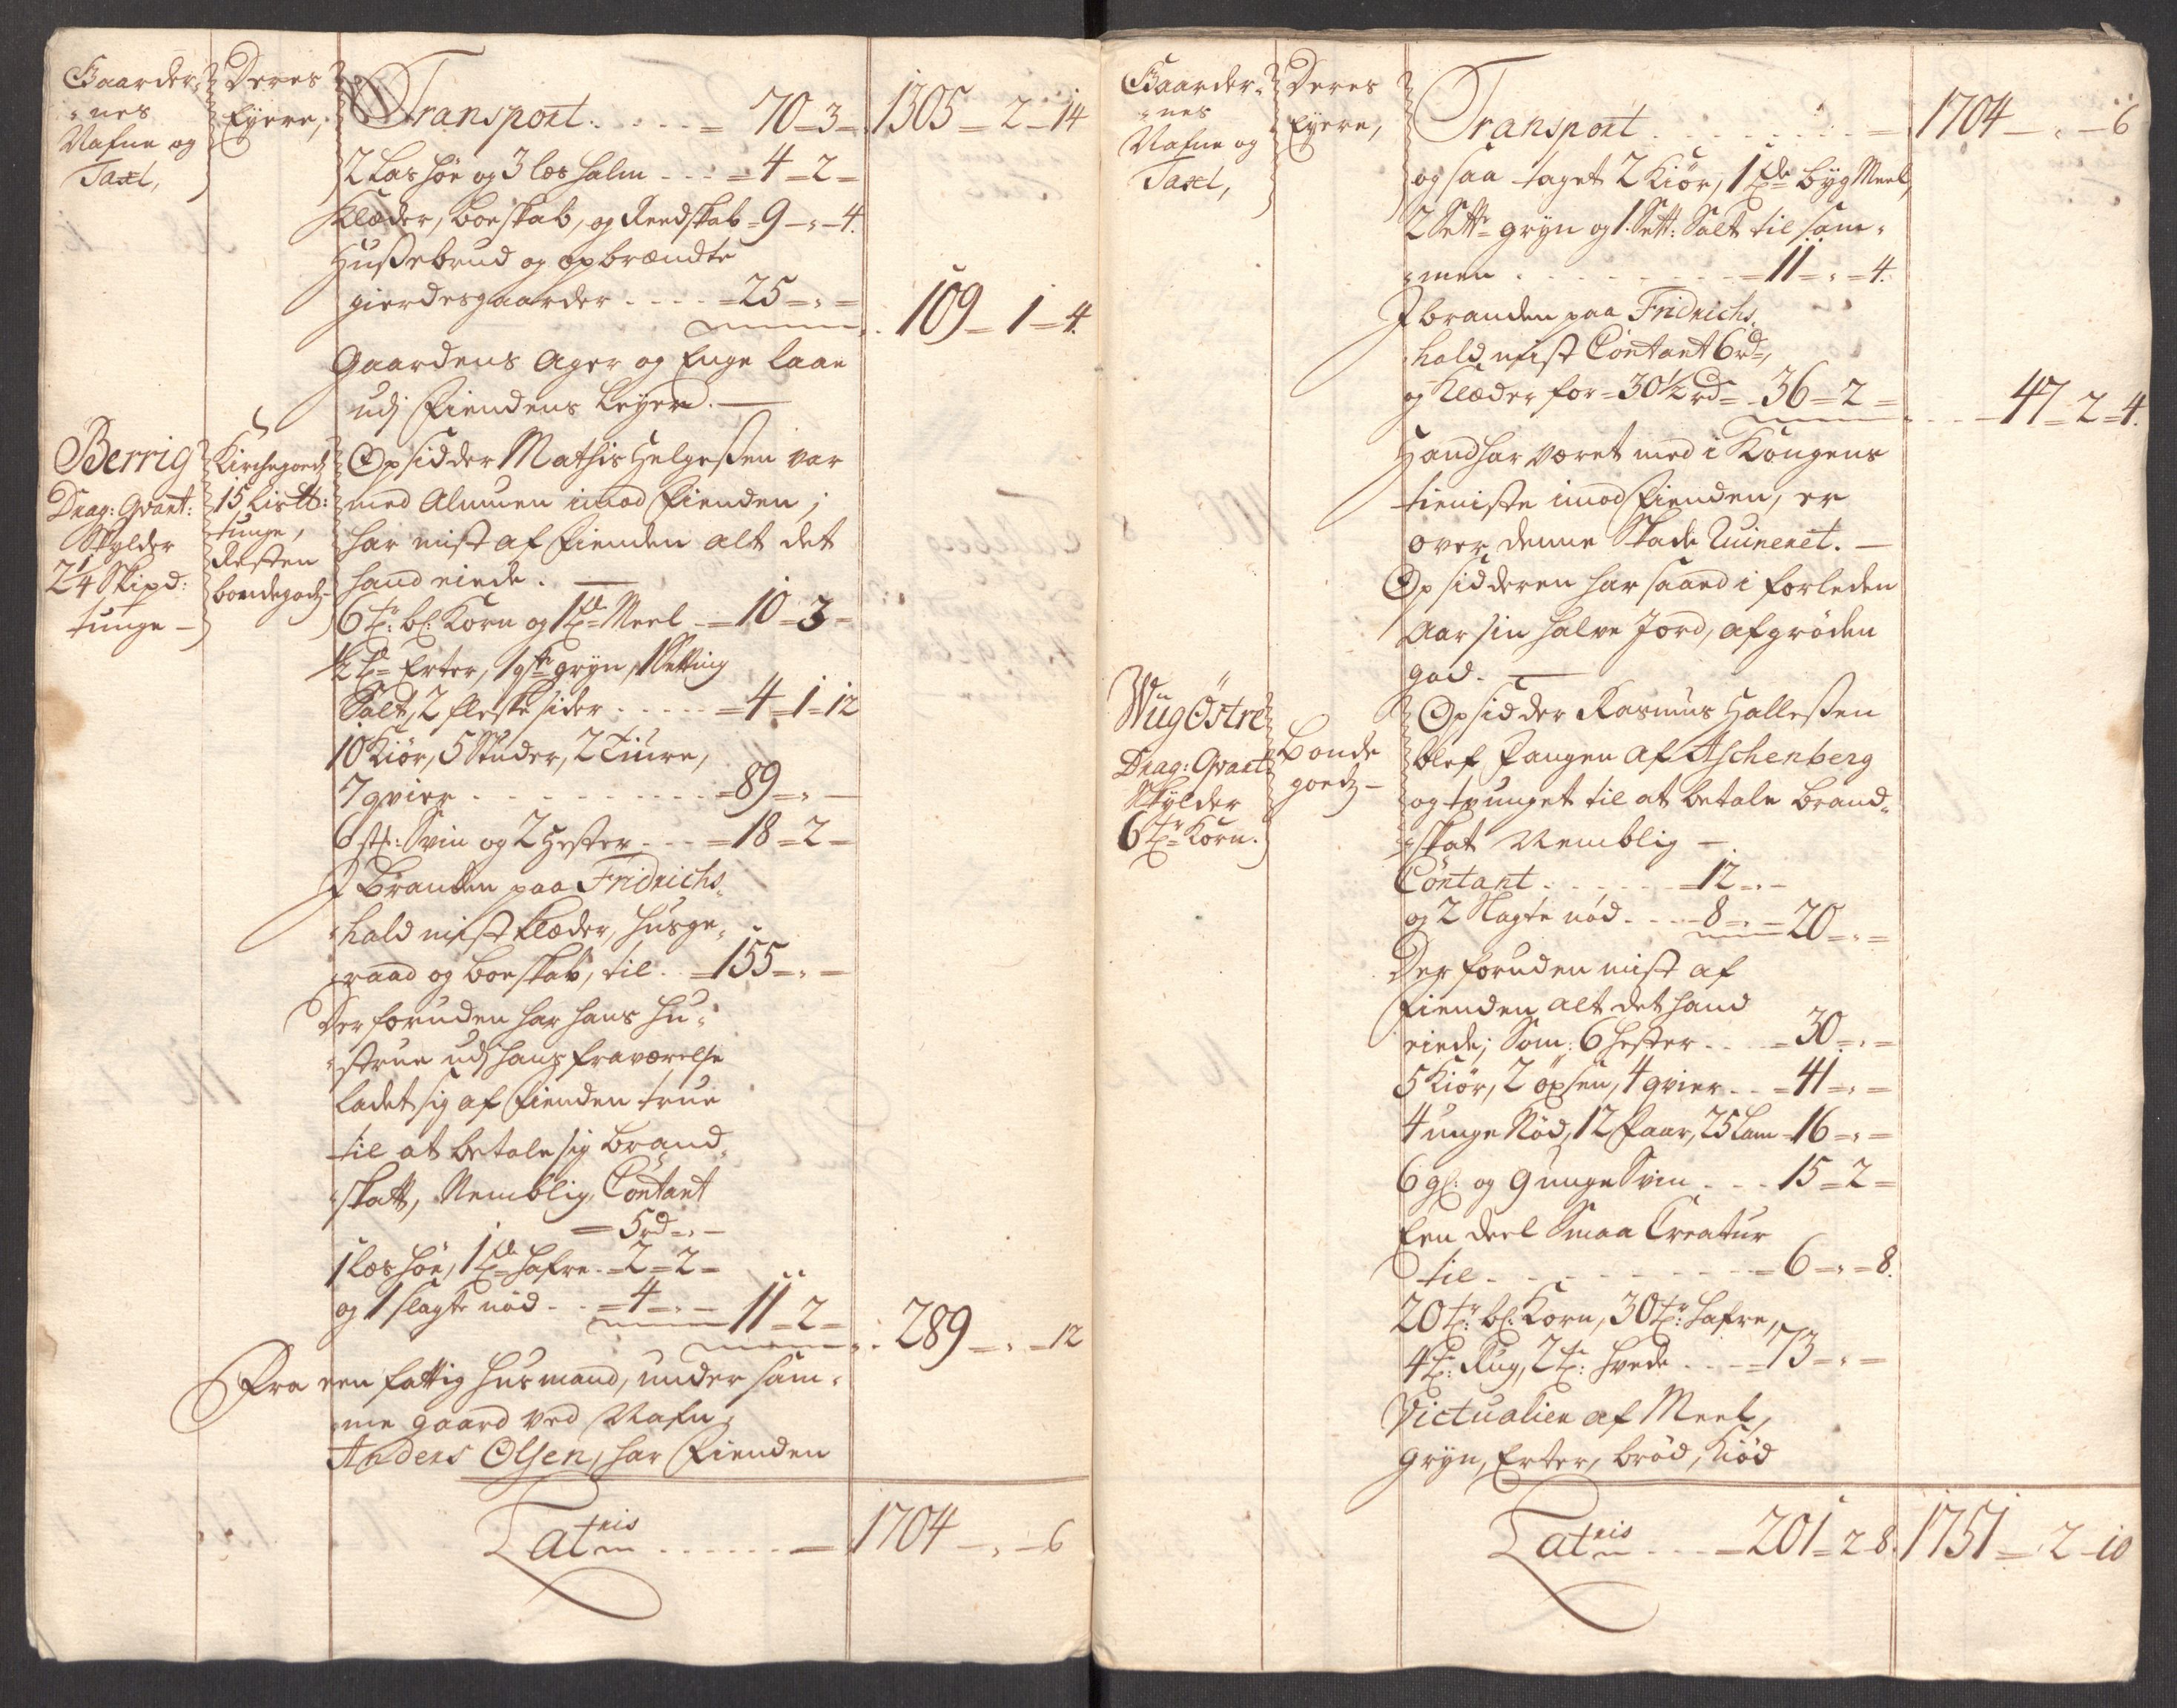 Gaarder-
-nes
Nafne og
Taxt,
Deres
Eyere,
Transport . . . . . = 70 = 3 = 1305 = 2 = 14
2 Las höe og 3 læs halm . . . = 4 = 2 =
Klæder, boeskab, og Reedskab = 9 = „ = 4.
Hussebrud og opbrændte
gierdesgaarder . . . . = 25 = „ =
109 = 1 = 4.
Gaardens Ager og Enge laae
udj Fiendens Leyer. —
Berrig
Drag: Qvart:
Skylder
2¼ Skipd:
tunge —
Kirchegoedz
15 Lis℔:
tunge,
Resten
bondegodz —
Opsidder Mathis Helgessen var
med Almuen imod Fienden;
har mist af Fienden alt det
hand eiede. —
6 tr: bl: Korn og 1 td= Meel = 10 = 3 =
½ td= Erter, 1 qrt= gryn, 1 Setting
Salt, 2 fleske sider . . . . . = 4 = 1 = 12
10 Kiör, 5 Studer, 2 Tiure,
7 qvier . . . . . . . . . = 89 = „ =
6 stk: Svin og 2 Hester . . . = 18 = 2 =
I Branden paa Fridrichs-
-hald mist Klæder, husge-
-raad og boeskab, til . = 155 = „ =
Der foruden har hans Hu-
-strue udj hans fraværelse
ladet sig af Fienden true
til at betale sig Brand-
-skatt, Nemblig, Contant
= 5 rd = „ =
1 læs höe, 1 td= Hafre = 2 = 2 =
og 1 slagte nöd . . = 4 = „ = 11 = 2 =
289 = „ = 12
Fra een fattig huusmand, under sam-
-me gaard ved Nafn
Anders Olsen, har Fienden
Lateris . . . . . . = 1704 = „ = 6
Gaarder-
-nes
Nafne og
Taxt,
Deres
Eyere,
Transport . . . . . . . . = 1704 = „ = 6
og saa taget 2 Kiör, 1 tde byg Meel,
2 Settr= gryn og 1 Sett: Salt til sam-
-men . . . . . . . . = 11 = „ = 4.
I branden paa Fridrichs-
-hald mist Contant 6 rd=,
og Klæder for = 30½ rd= 36 = 2 =
47 = 2 = 4.
Hand har været med i Kongens
tieniste imod Fienden, er
over denne Skade Ruineret. —
Opsidderen har saaed i forleden
Aar sin halve Jord, afgröden
god. —
Wüg Östre
Drag: Qvart:
Skylder
6 tr= Korn.
Bonde
goedz —
Opsidder Rasmus Hallessen
blef Fangen af Aschenberg
og tvunget til at betale brand-
-skat Nemblig —
Contant . . . . . . = 12 = „ =
og 2 Slagte nöd . . . = 8 = „ = 20 = „ =
Der foruden mist af
Fienden alt det hand
eiede; Som: 6 hester . . . = 30 = „ =
5 Kiör, 2 öxsen, 4 qvier . . = 41 = „ =
4 unge Nöd, 12 Faar, 25 Lam = 16 = „ =
6 gl: og 9 unge Svin . . . 15 = 2 =
Een deel Smaa Creatur
til . . . . . . . . . . = 6 = „ = 8.
20 tr: bl: Korn, 30 tr: Hafre,
4 tr: Rug, 2 tr: Hvede . . . = 73 = „ =
Victualier af Meel,
gryn, Erter, bröd, Kiöd
Lateris . . . . = 201 = 2 = 8. 1751 = 2 = 10